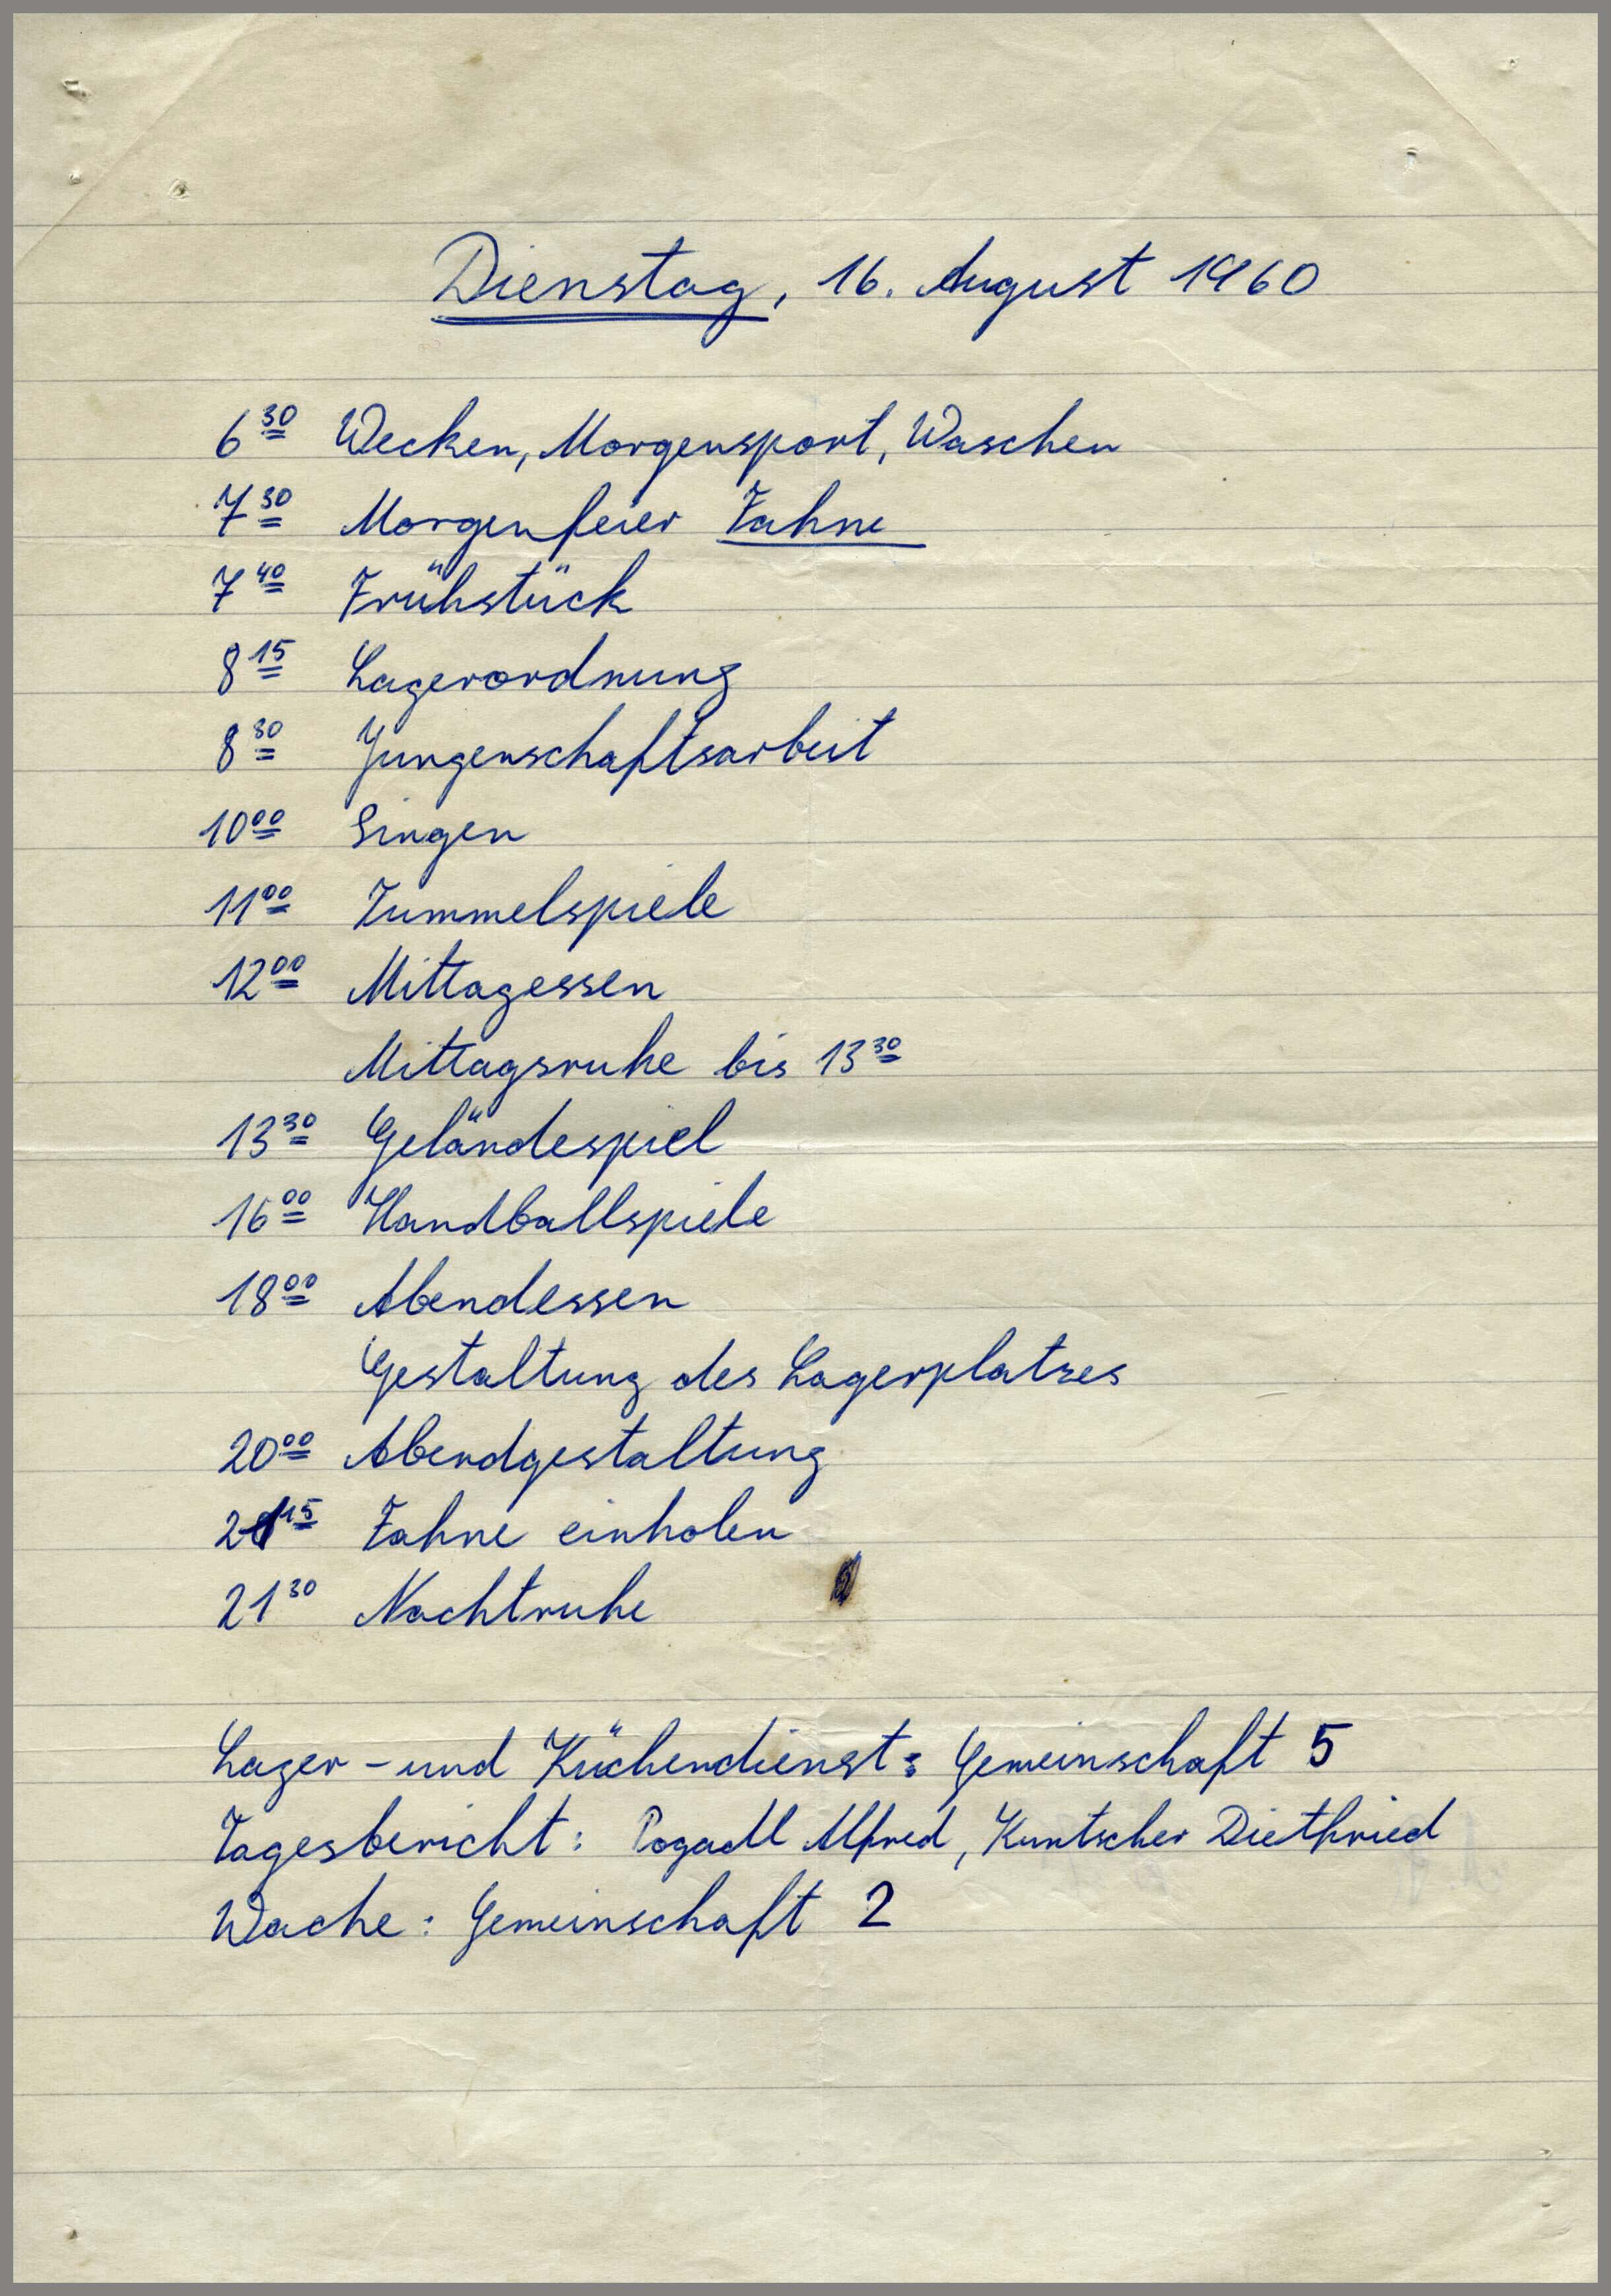 Dienstag, 16. August 1960
6 30 Wecken, Morgensport, Waschen
7 30 Morgenfeier Fahne
7 40 Frühstück
8 15 Lagerordnung
8 30 Jungenschaftsarbeit
10 00 Singen
11 00 Tummelspiele
12 00 Mittagessen
Mittagsruhe bis 13 30
13 30 Geländespiel
16 00 Handballspiele
18 00 Abendessen
Gestaltung des Lagerplatzes
20 00 Abendgestaltung
21 15 Fahne einholen
21 30 Nachtruhe
Lager - und Küchendienst: Gemeinschaft 5
Tagesbericht: Pogadl Alfred, Kuntscher Dietfried
Wache: Gemeinschaft 2